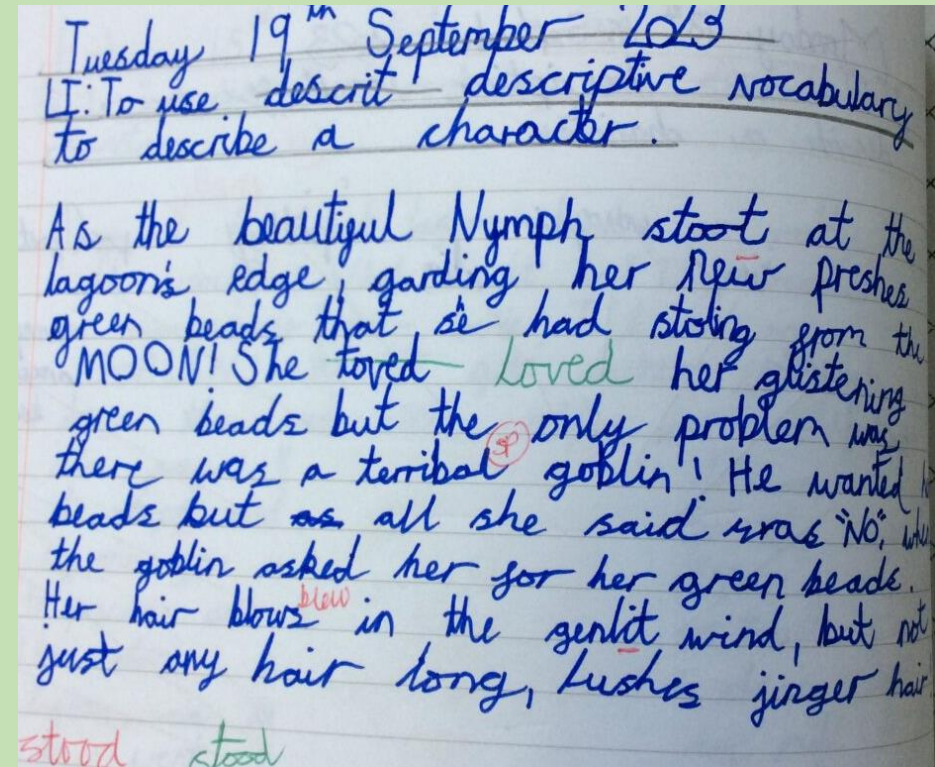 Tuesday 19th September 2023
LI: To use descrit descriptive vocabulary
to describe a character.
As the beautiful Nymph stoot at the
lagoon's edge, garding her new preshes
green beads that se had stoling from the
MOON! She toved Loved her glistening
green beads but the only problem was
there was a terribal sp goblin! He wanted
beads but as all she said was "No",
the goblin asked her for her green beads.
Her hair blows blew in the genlot wind, but not
just any hair long, lushes jinger hair
stood stood